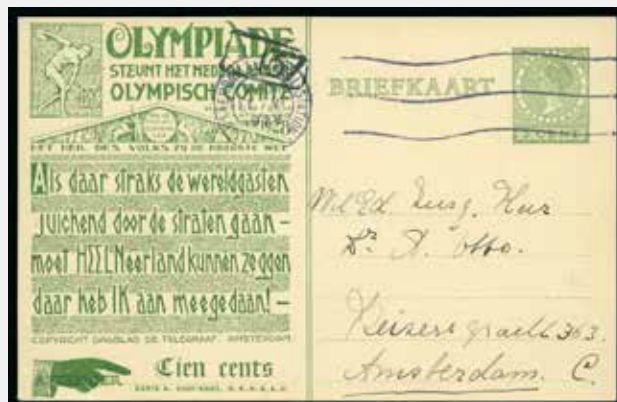 OLYMPIADE
STEUNT HET NEDERLANDSCH
OLYMPISCH COMITÉ
HET HEIL DES VOLKS ZIJ DE HOOGSTE WET
Als daar straks de wereldgasten
juichend door de straten gaan –
moet HEEL Neerland kunnen zeggen
daar heb IK aan meegedaan! –
COPYRIGHT DAGBLAD DE TELEGRAAF. AMSTERDAM
Cien cents
BRIEFKAART
CENT
Dr A. Otto.
Keizersgracht 363.
Amsterdam. C.